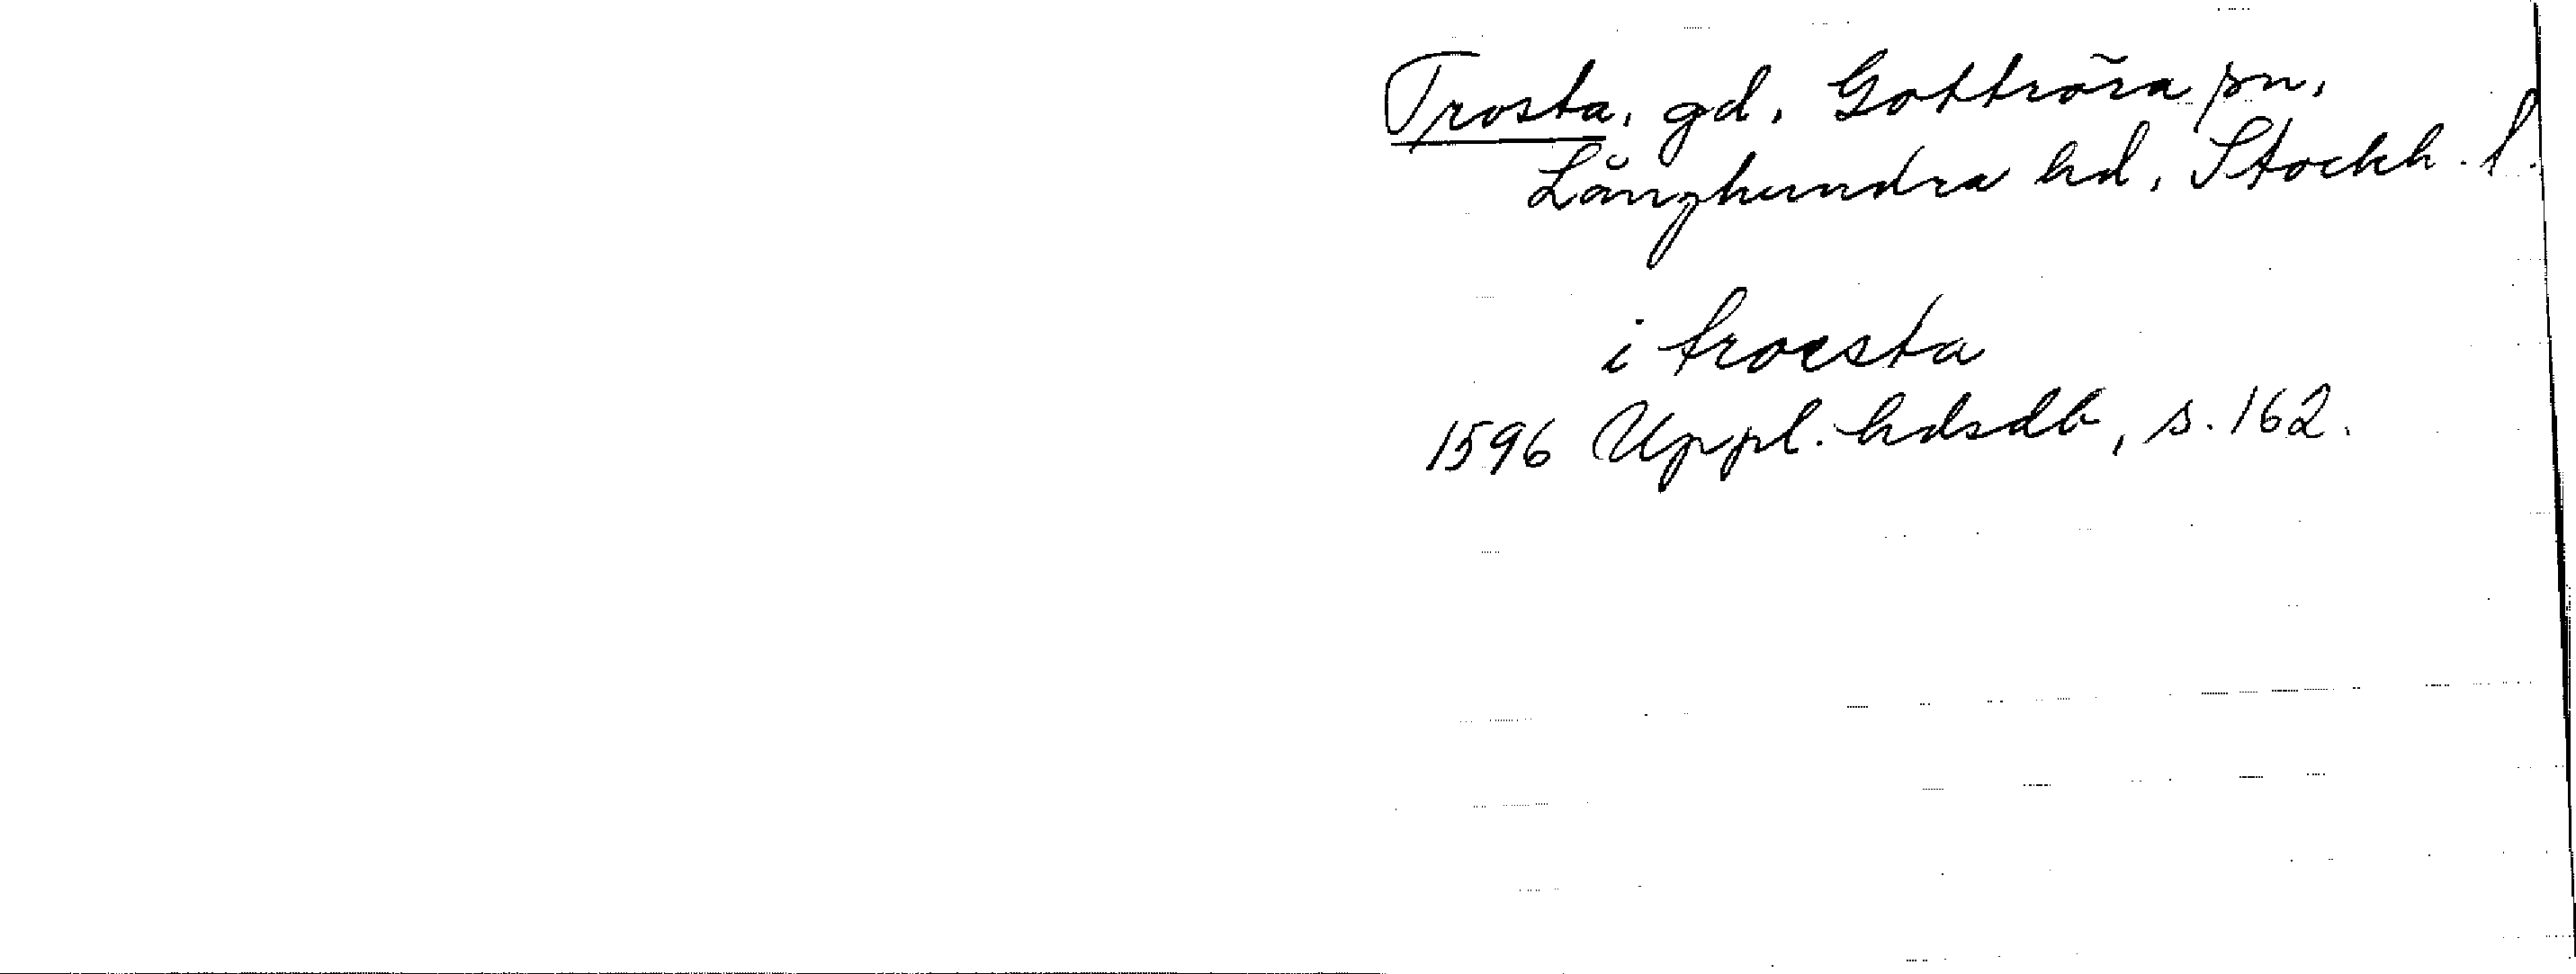 Trosta, gd, Gottröra sn,
Långhundra hd, Stockh. l.
i troesta
1596 Uppl. hdsdb, s. 162.